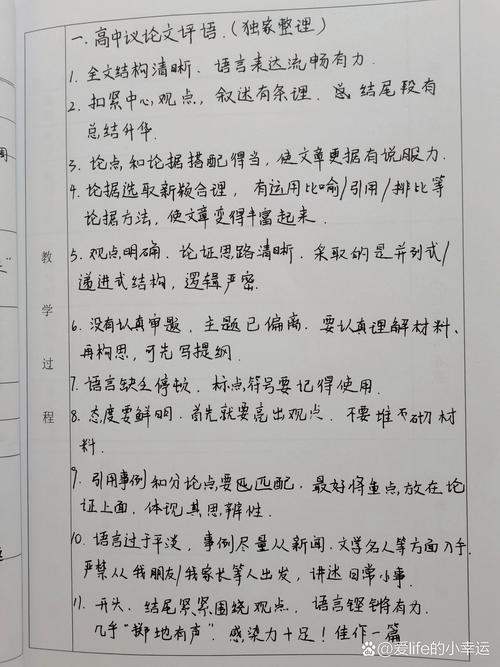 一.高中议论文评语.(独家整理)
1. 全文结构清晰、语言表达流畅有力.
2. 扣紧中心观点,叙述有条理.总结尾段有
总结升华.
3. 论点和论据搭配得当,使文章更据有说服力.
4. 论据选取新颖合理,有运用比喻/引用/排比等
论据方法,使文章变得丰富起来.
5. 观点明确.论证思路清晰.采取的是并列式/
递进式结构,逻辑严密.
6. 没有认真审题,主题已偏离.要认真理解材料、
再构思,可先写提纲.
7. 语言缺乏停顿.标点符号要记得使用.
8. 态度要鲜明.首先就要亮出观点.不要堆砌材
料.
9. 引用事例和分论点要匹配.最好将重点放在论
证上面.体现其思辨性.
10. 语言过于平淡,事例尽量从新闻.文学名人等方面入手.
严禁从我朋友/我家长等人出发,讲述日常小事.
11. 开头、结尾紧紧围绕观点,语言铿锵有力.
几乎"掷地有声".感染力十足!佳作一篇
教
学
过
程
周
@爱life的小幸运